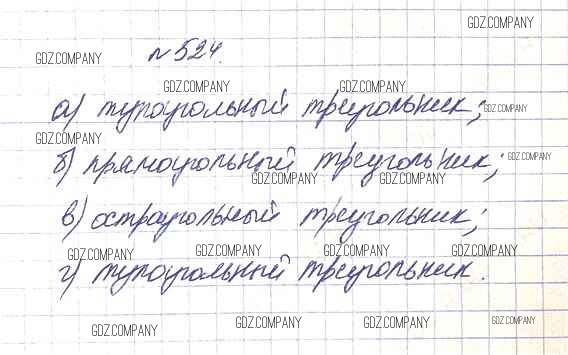 GDZ.COMPANY
№524.
GDZ.COMPANY
GDZ.COMPANY GDZ.COMPANY
а) тупоугольный треугольник;
GDZ.COMPANY
GDZ.COMPANY
б) прямоугольный треугольник;
GDZ.COMPANY
GDZ.COMPANY GDZ.COMPANY
в) остроугольный треугольник;
GDZ.COMPANY GDZ.COMPANY GDZ.COMPANY GDZ.COMPANY
г) тупоугольный треугольник.
GDZ.COMPANY GDZ.COMPANY GDZ.COMPANY GDZ.COMPANY